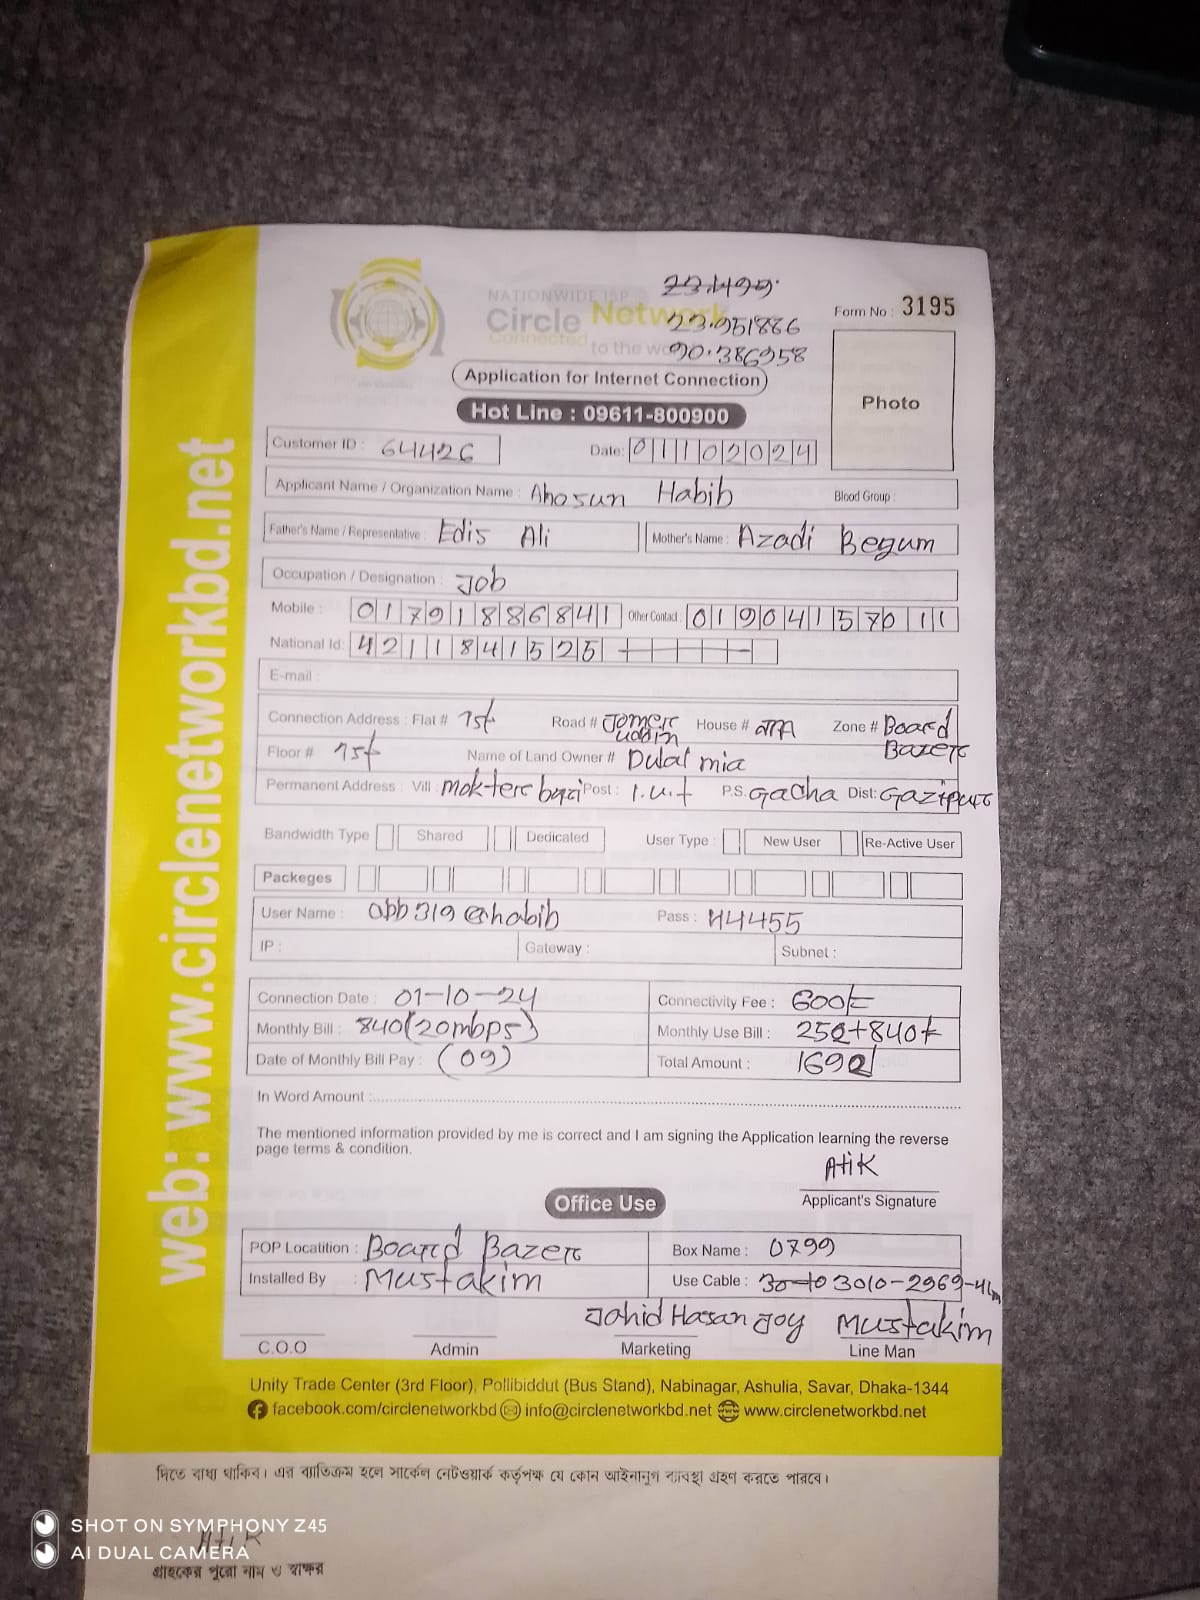 NATIONWIDE ISP
Circle Network
Connected to the
23.951886
90.386958
Form No : 3195
Photo
Application for Internet Connection
Hot Line : 09611-800900
Customer ID : 64426 Date: 01102024
Applicant Name / Organization Name : Ahosun Habib Blood Group :
Father's Name / Representative : Edis Ali Mother's Name : Azadi Begum
Occupation / Designation : Job
Mobile : 01791886841 Other Contact : 01904157011
National Id: 4211841525
E-mail :
Connection Address : Flat # 1st Road # Jomer uddin House # Zone # Board Bazer
Floor # 1st Name of Land Owner # Dulal mia
Permanent Address : Vill : mokter bari Post : I.U.T P.S. Gacha Dist: Gazipur
Bandwidth Type Shared Dedicated User Type : New User Re-Active User
Packeges
User Name : obb319@habib Pass : 44455
IP : Gateway : Subnet :
Connection Date : 01-10-24 Connectivity Fee : 600/=
Monthly Bill : 840(20mbps) Monthly Use Bill : 252+840/-
Date of Monthly Bill Pay : (09) Total Amount : 1692/
In Word Amount :
The mentioned information provided by me is correct and I am signing the Application learning the reverse
page terms & condition.
Atik
Applicant's Signature
Office Use
POP Locatition : Board Bazer Box Name : 0799
Installed By : Mustakim Use Cable : 3010-2969-41m
Jahid Hasan Joy Mustakim
C.O.O Admin Marketing Line Man
Unity Trade Center (3rd Floor), Pollibiddut (Bus Stand), Nabinagar, Ashulia, Savar, Dhaka-1344
facebook.com/circlenetworkbd info@circlenetworkbd.net www.circlenetworkbd.net
web: www.circlenetworkbd.net
দিতে বাধ্য থাকিব। এর ব্যতিক্রম হলে সার্কেল নেটওয়ার্ক কর্তৃপক্ষ যে কোন আইনানুগ ব্যবস্থা গ্রহণ করতে পারবে।
Atik
গ্রাহকের পুরো নাম ও স্বাক্ষর
SHOT ON SYMPHONY Z45
AI DUAL CAMERA